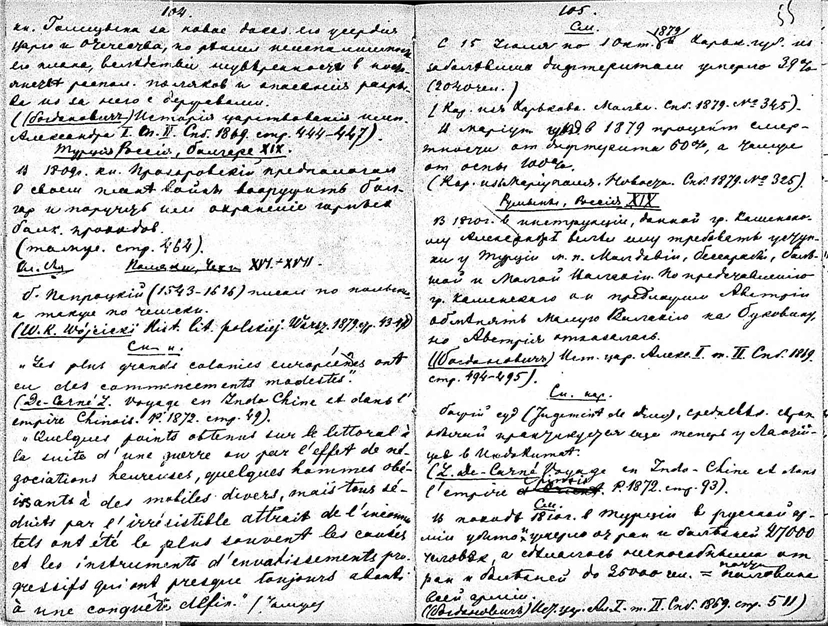 104.
кн. Голицына за новое доказ. его усердия
царю и Отечеству, но решил неисполнимость
его плана, вследствие неуверенности в
располож. поляков и опасения разрыва
из за него с державами.
(Богдановичъ) Исторія царствованія имп.
Александра I. т. II. Спб. 1869. стр. 444–447).
Турція Россія, болгаре XIX.
В 1809г. кн. Прозоровский предполагал
в своем плане войны вооружить болгар
и поручить им охранение
балк. проходов.
(там же. стр. 464).
Поляки, Чехи XVI–XVII.
б. Папроцкій (1543–1616) писал по польски
а также по чешски.
(W. K. Wójcicki Hist. lit. polskiej. Warsz. 1879. стр. 43-48)
См. п.
„Les plus grands colonies européennes ont
eu des commencements modestes".
(De-Carné L. Voyage en Indo Chine et dans l'
empire Chinois. P. 1872. стр. 49).
„Quelques points obtenus sur le littoral à
la suite d'une guerre ou par l'effet de né-
gociations heureuses, quelques hommes obé-
issants à des mobiles divers, mais tous sé-
duits par l'irrésistible attrait de l'inconnu
tels ont été le plus souvent les causes
et les instruments d'envahissements pro-
gressifs qui ont presque toujours abouti
à une conquête défin." (Там же)
105.
55
См.
С 15 Июля по 1 Окт. 1879 в Харьк. губ. из
заболевших дифтеритом умерло 39%
(2040 чел.)
(Кор. из Харькова. Молва. Спб. 1879. № 345).
В мариуп уезд в 1879 процент смерт-
ности от дифтерита 60%, а
от оспы 100%.
(Кор. из Мариуполя. Новости. Спб. 1879. № 325).
Румыны, Россія XIX
В 1810г. в инструкции, данной гр. Каменско-
му Александр велел ему требовать уступ-
ки у Турции м. п. Молдавии, Бессарабии, Боль-
шой и Малой Валахии. По представлению
гр. Каменского он предложил Австрии
обменять Малую Валахию на Буковину,
но Австрия отказалась.
(Богдановичъ) Ист. цар. Алекс. I. т. II Спб. 1869.
стр. 494–495).
См. нар.
божий суд (Jugement de dieu), средневек.
практикуется еще теперь у
в Индокитае.
(L. De-Carné Voyage en Indo-Chine et dans
l'empire chinois P. 1872. стр. 93).
См.
В поход 1810г. в Турции в русской ар-
мии убито и умерло от ран и болезней 27000
человек, а сделалось неспособными от
ран и болезней до 35000 чел. = почти половина
всей армии.
(Богдановичъ) Ист. цар. Ал. I. т. II. Спб. 1869. стр. 511)